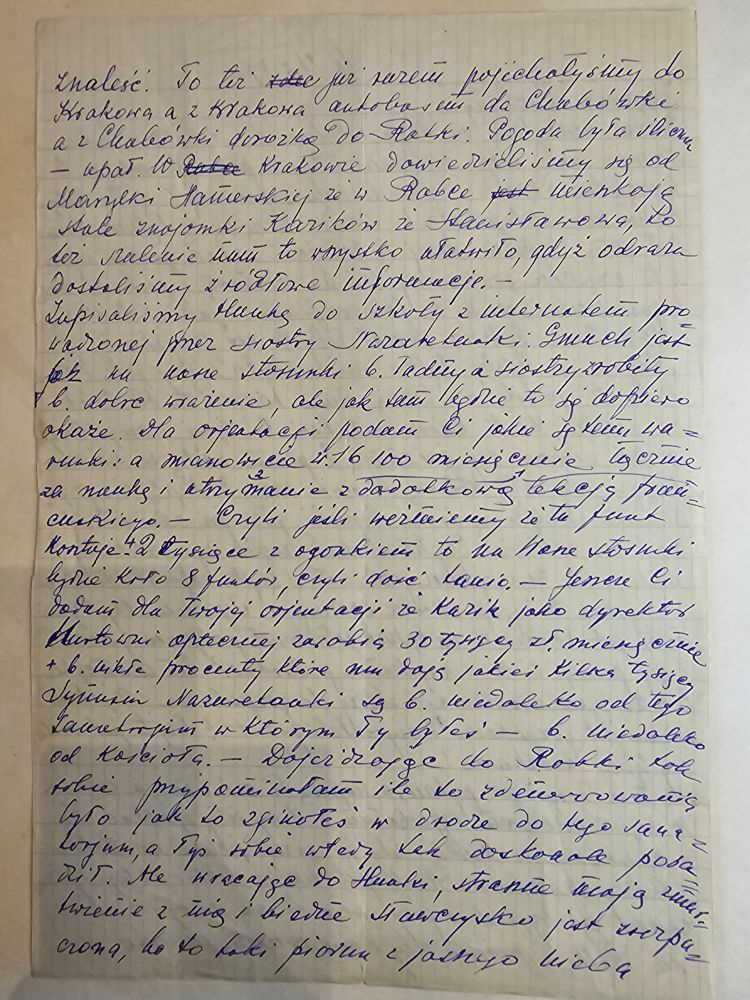 znaleść. To też już razem pojechałyśmy do
Krakowa a z Krakowa autobusem do Chabówki
a z Chabówki dorożką do Rabki. Pogoda była śliczna
— upał. W Krakowie dowiedzieliśmy się od
Marylki Hamerskiej że w Rabce mieszkają
stale znajomki Kazików ze Stanisławowa, to
też szalenie nam to wszystko ułatwiło, gdyż odrazu
dostaliśmy źródłowe informacje. —
Zapisaliśmy Hankę do szkoły z internatem pro=
wadzonej przez siostry Nazaretanki. Gmach jest
jak na nasze stosunki b. ładny a siostry zrobiły
b. dobre wrażenie, ale jak tam będzie to się dopiero
okaże. Dla orjentacji podam Ci jakie są tam wa=
runki: a mianowicie zł. 16 100 miesięcznie łącznie
za naukę i utrzymanie z dodatkową lekcją fran=
cuskiego. — Czyli jeśli weźmiemy że tu funt
kosztuje 2 tysiące z ogonkiem to na Wasze stosunki
będzie koło 8 funtów, czyli dość tanio. — Jeszcze Ci
dodam dla Twojej orjentacji że Kazik jako dyrektor
Hurtowni aptecznej zarabia 30 tysięcy zł. miesięcznie
+ b. nikłe procenty które mu dają jakieś kilka tysięcy
Nazaretanki są b. niedaleko od tego
sanatorjum w którym Ty byłeś — b. niedaleko
od kościoła. — Dojeżdżając do Rabki tak
sobie przypominałam ile to zdenerwowania
było jak to zginąłeś w drodze do tego sana=
torjum, a Tyś sobie wtedy tak doskonale pora=
dził. Ale wracając do Hanki, straszne mają zmar=
twienie z nią i biedne Stawczysko jest
bo to taki piorun z jasnego nieba